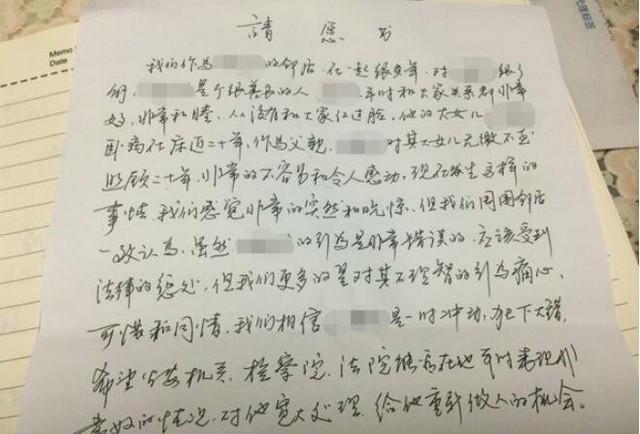 Memo
Date
請愿书
我们作为 的邻居,在一起很多年,对 很了
解, 是个很善良的人 平时和大家关系都非常
好,非常和睦,从没有和大家红过脸,他的大女儿
卧病在床近二十年,作为父親, 对其大女儿无微不至
照顾二十年,非常的不容易和令人感动,现在发生这样的
事情,我们感觉非常的突然和吃惊,但我们周围邻居
一致认为,虽然 的引为是非常错误的,应该受到
法律的惩处,但我们更多的是对其不理智的引为痛心、
可惜和同情,我们相信 是一时冲动,犯下大错,
希望公安机关、检察院、法院能看在他平时表现
良好的情况,对他宽大处理,给他重新做人的机会。